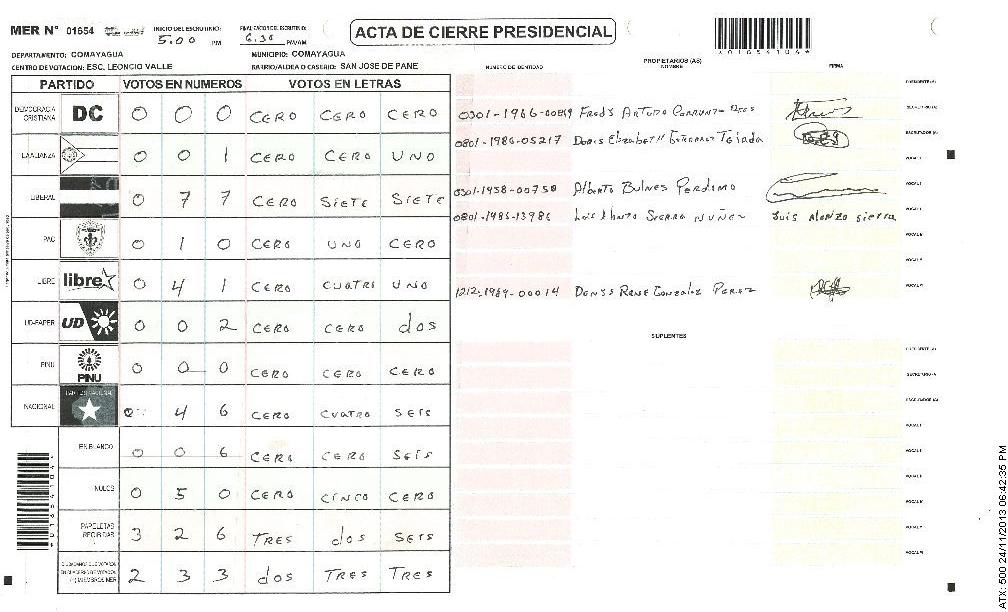 MER N° 01654 INICIO DEL ESCRUTINIO: 5.00 PM FINALIZACION DEL ESCRUTINIO: 6.30 PM/AM
ACTA DE CIERRE PRESIDENCIAL
DEPARTAMENTO: COMAYAGUA MUNICIPIO: COMAYAGUA
CENTRO DE VOTACION: ESC. LEONCIO VALLE BARRIO/ALDEA O CASERIO: SAN JOSE DE PANE
PARTIDO VOTOS EN NUMEROS VOTOS EN LETRAS
DEMOCRACIA CRISTIANA DC 0 0 0 CERO CERO CERO
LA ALIANZA 0 0 1 CERO CERO UNO
LIBERAL 0 7 7 CERO SIETE SIETE
PAC 0 1 0 CERO UNO CERO
LIBRE libre 0 4 1 CERO CUATRI UNO
UD-FAPER UD 0 0 2 CERO CERO dos
PINU PINU 0 0 0 CERO CERO CERO
NACIONAL 0 4 6 CERO CUATRO SEIS
EN BLANCO 0 0 6 CERO CERO SEIS
NULOS 0 5 0 CERO CINCO CERO
PAPELETAS RECIBIDAS 3 2 6 TRES dos SEIS
2 3 3 dos TRES TRES
NUMERO DE IDENTIDAD PROPIETARIOS (AS) NOMBRE FIRMA
0301-1966-00849 Fredy Arturo
0801-1986-05217 Doris Elizabeth Tejada
0301-1958-00750 Alberto Bulnes Perdomo
0801-1985-13986 Luis Alonzo Sierra Nuñez Luis Alonzo Sierra
1212-1989-00014 Denys Rene Gonzalez Perez
SUPLENTES
ATX: 500 24/11/2013 06:42:35 PM